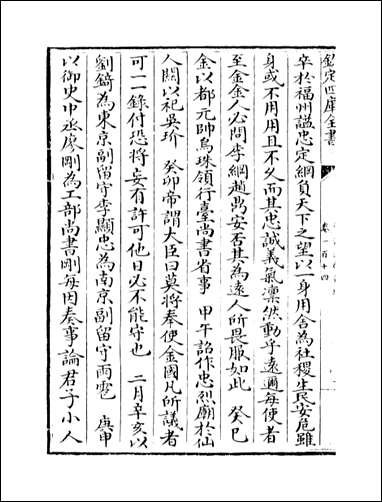 欽定四庫全書
卷一百十四
卒於福州諡忠定綱負天下之望以一身用舍為社稷生民安危雖
身或不用用且不久而其忠誠義氣凛然動乎遠邇每使者
至金金人必問李綱趙鼎安否其為逺人所畏服如此　癸巳
金以都元帥烏珠領行臺尚書省事　甲午詔作忠烈廟於仙
人闗以祀吳玠　癸卯帝謂大臣曰莫將奉使金國凡所議者
可一一錄付恐將妄有許可他日必不能守也　二月辛亥以
劉錡為東京副留守李顯忠為南京副留守雨雹　庚申
以御史中丞廖剛為工部尚書剛每因奏事論君子小人